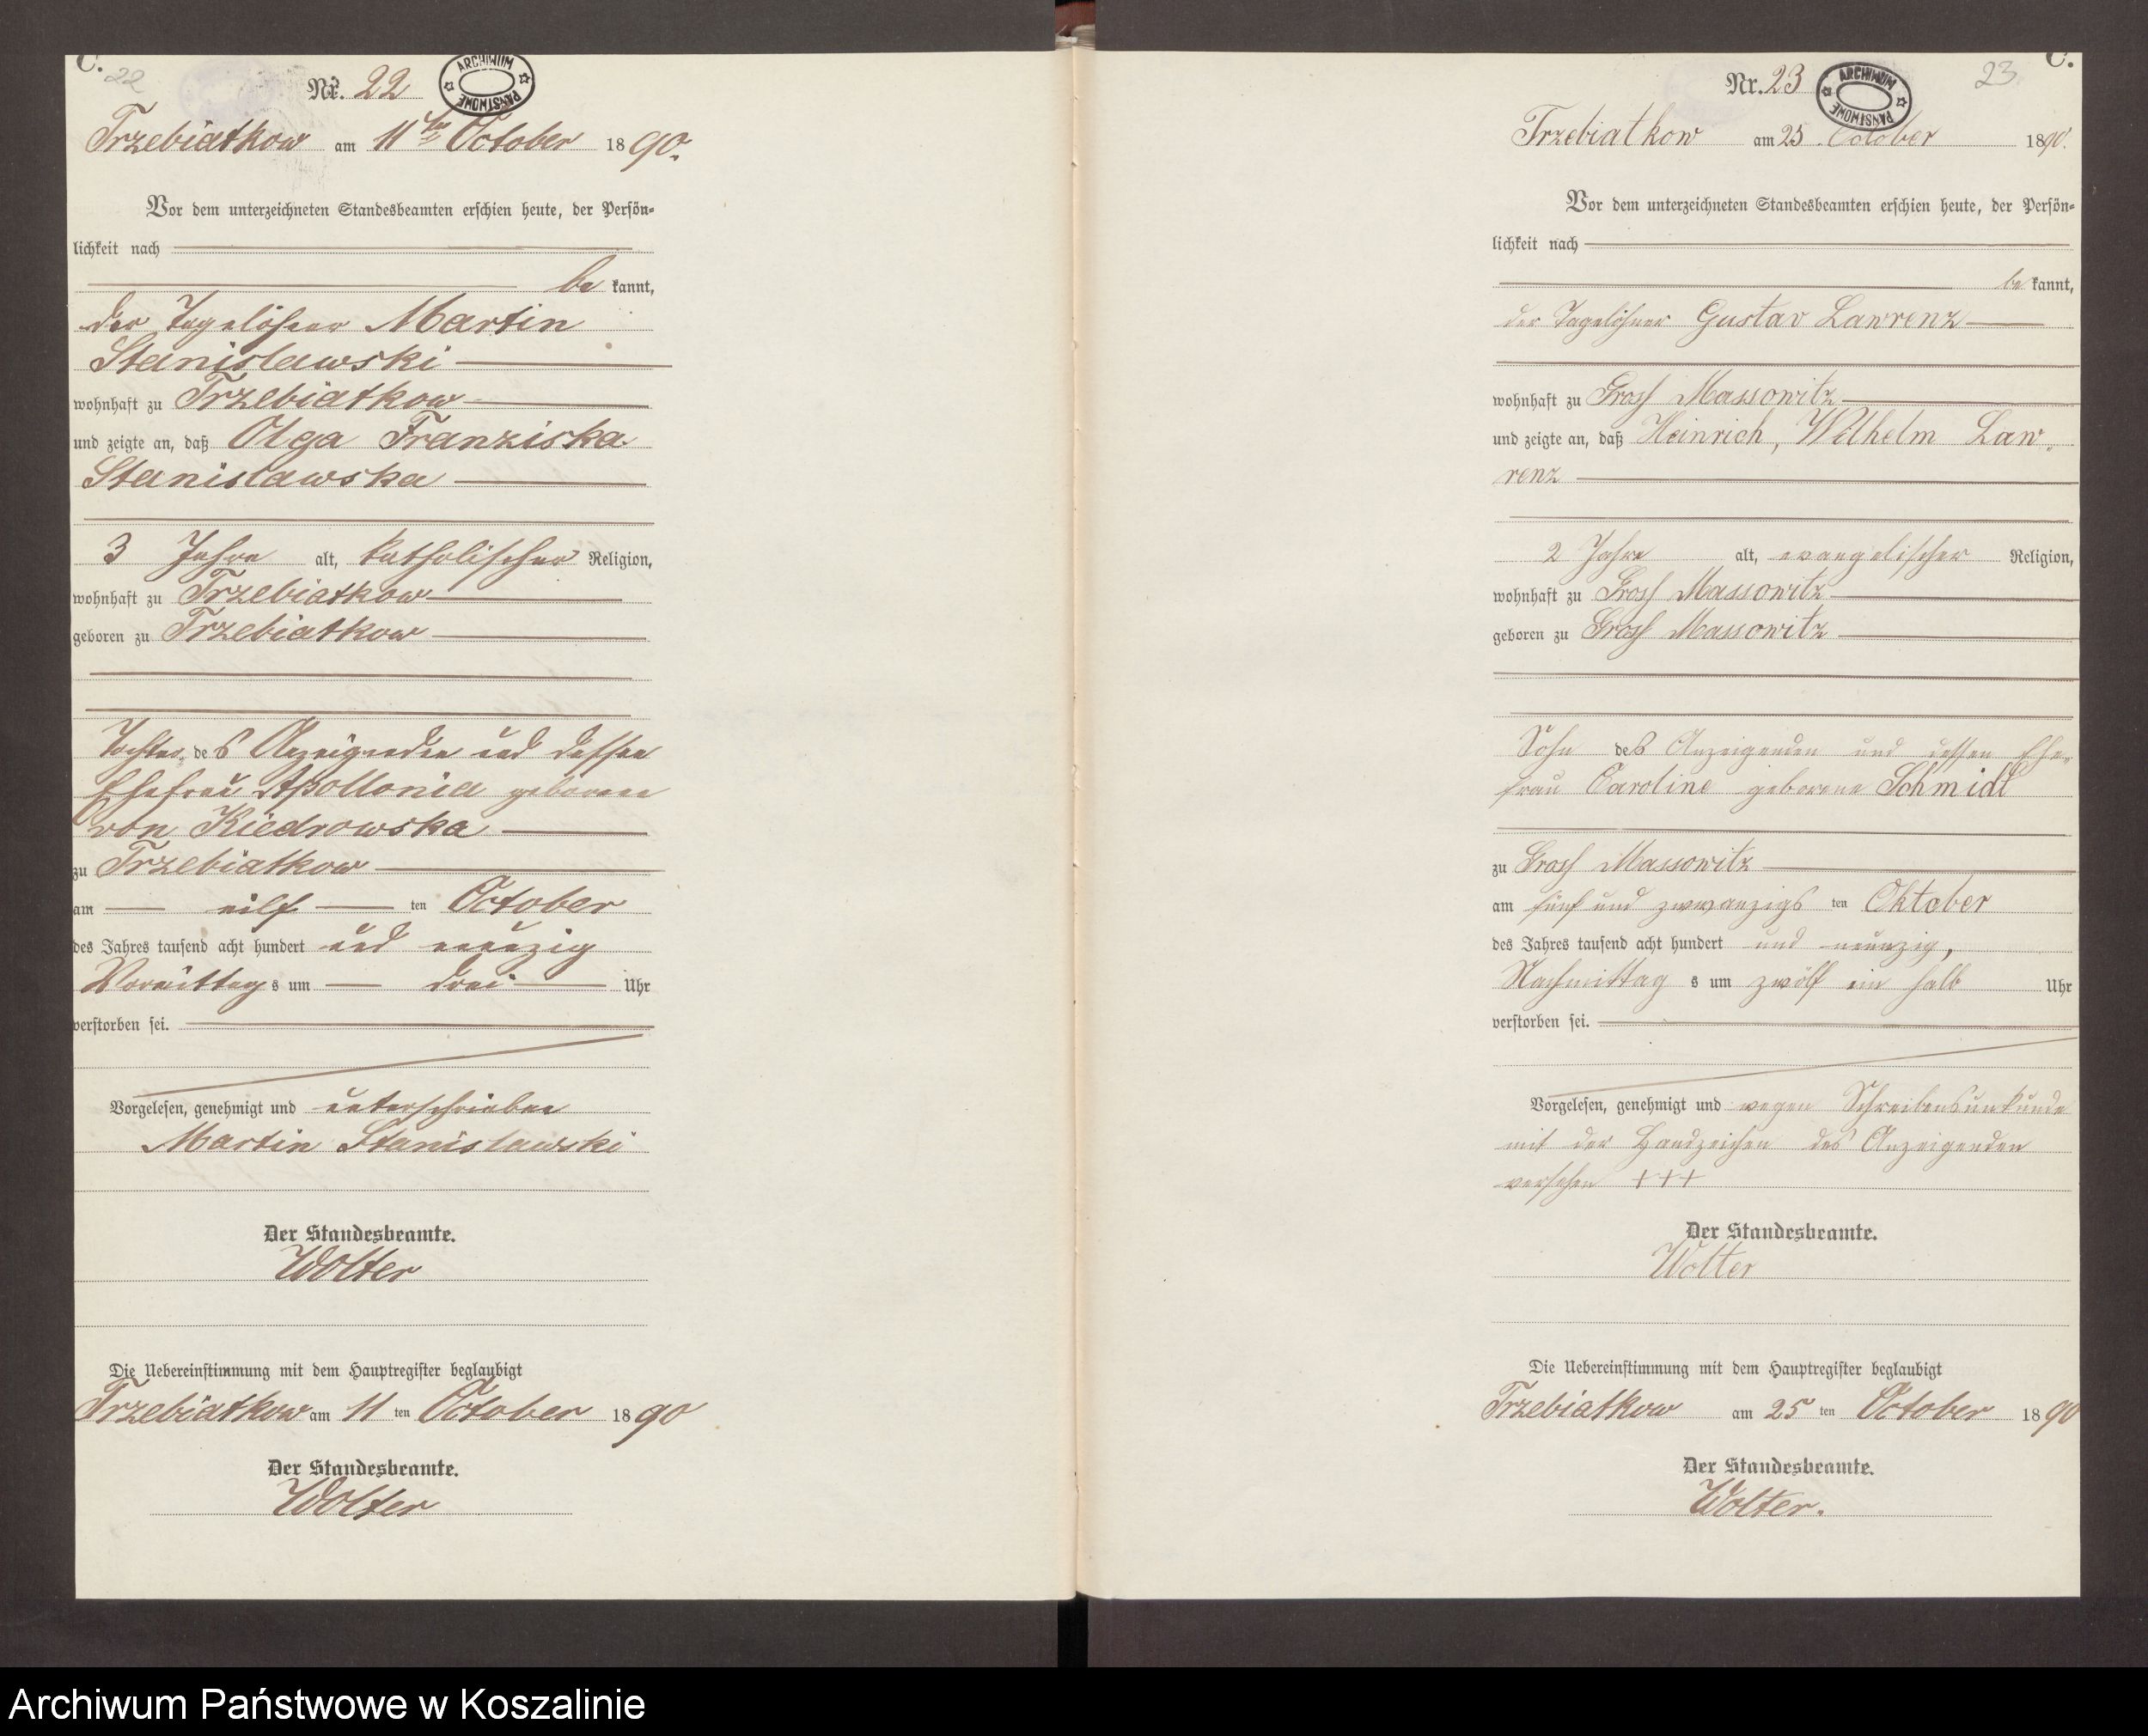 C.
22
Nr. 22
ARCHIWUM PAŃSTWOWE
Trzebiatkow am 11ten October 1890.
Vor dem unterzeichneten Standesbeamten erschien heute, der Persön-
lichkeit nach
be kannt,
der Tagelöhner Martin
Stanislawski
wohnhaft zu Trzebiatkow
und zeigte an, daß Olga Franziska
Stanislawska
3 Jahre alt, katholischer Religion,
wohnhaft zu Trzebiatkow
geboren zu Trzebiatkow
Tochter des Anzeigenden und dessen
Ehefrau Apollonia geborene
von Kiedrowska
zu Trzebiatkow
am eilf ten October
des Jahres tausend acht hundert und neunzig
Vormittags um drei Uhr
verstorben sei.
Vorgelesen, genehmigt und unterschrieben
Martin Stanislawski
Der Standesbeamte.
Wolter
Die Uebereinstimmung mit dem Hauptregister beglaubigt
Trzebiatkow am 11 ten October 1890
Der Standesbeamte.
Wolter
C.
23
Nr. 23
ARCHIWUM PAŃSTWOWE
Trzebiatkow am 25. October 1890.
Vor dem unterzeichneten Standesbeamten erschien heute, der Persön-
lichkeit nach
be kannt,
der Tagelöhner Gustav Lawrenz
wohnhaft zu Gross Massowitz
und zeigte an, daß Heinrich, Wilhelm Law-
renz
2 Jahre alt, evangelischer Religion,
wohnhaft zu Gross Massowitz
geboren zu Gross Massowitz
Sohn des Anzeigenden und dessen Ehe-
frau Caroline geborene Schmidt
zu Gross Massowitz
am fünf und zwwanzigs ten Oktober
des Jahres tausend acht hundert und neunzig,
Nachmittag s um zwölf ein halb Uhr
verstorben sei.
Vorgelesen, genehmigt und wegen Schreibensunkunde
mit der Handzeichen des Anzeigenden
versehen +++
Der Standesbeamte.
Wolter
Die Uebereinstimmung mit dem Hauptregister beglaubigt
Trzebiatkow am 25 ten October 1890
Der Standesbeamte.
Wolter.
Archiwum Państwowe w Koszalinie